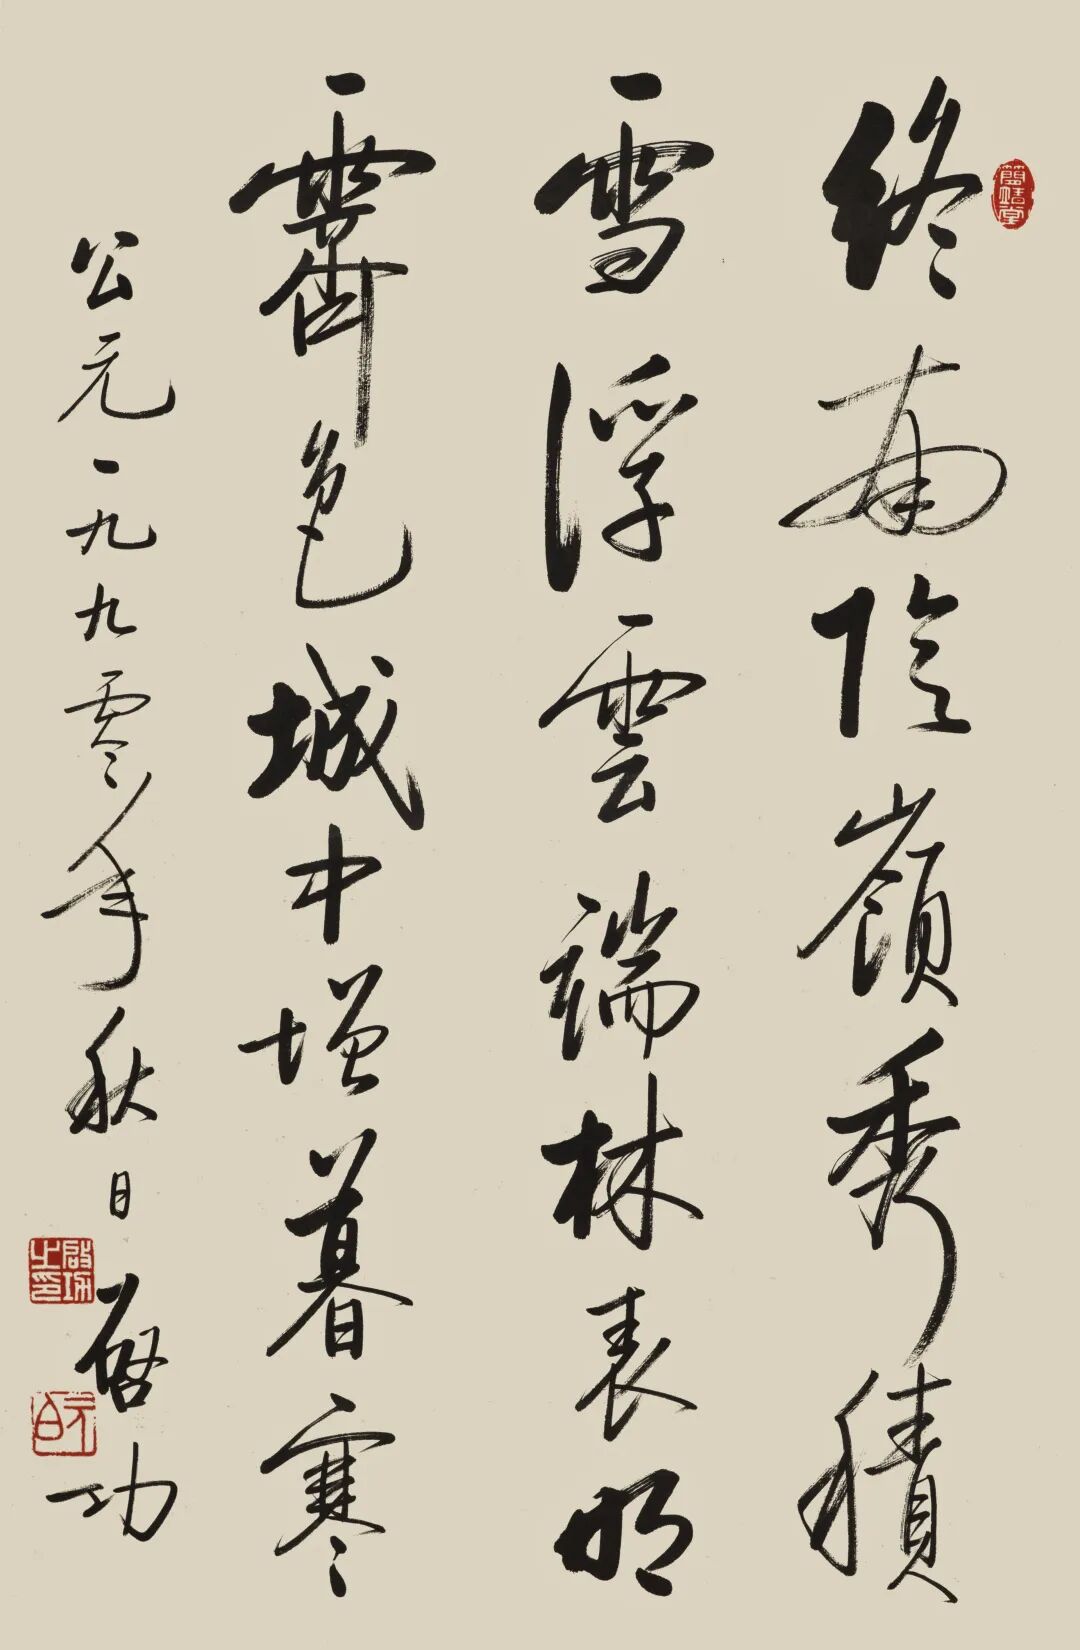 终南阴嶺秀積
雪浮雲端林表明
霽色城中增暮寒
公元一九九零年秋日
啓功
簡靖堂
啟功之印
元白